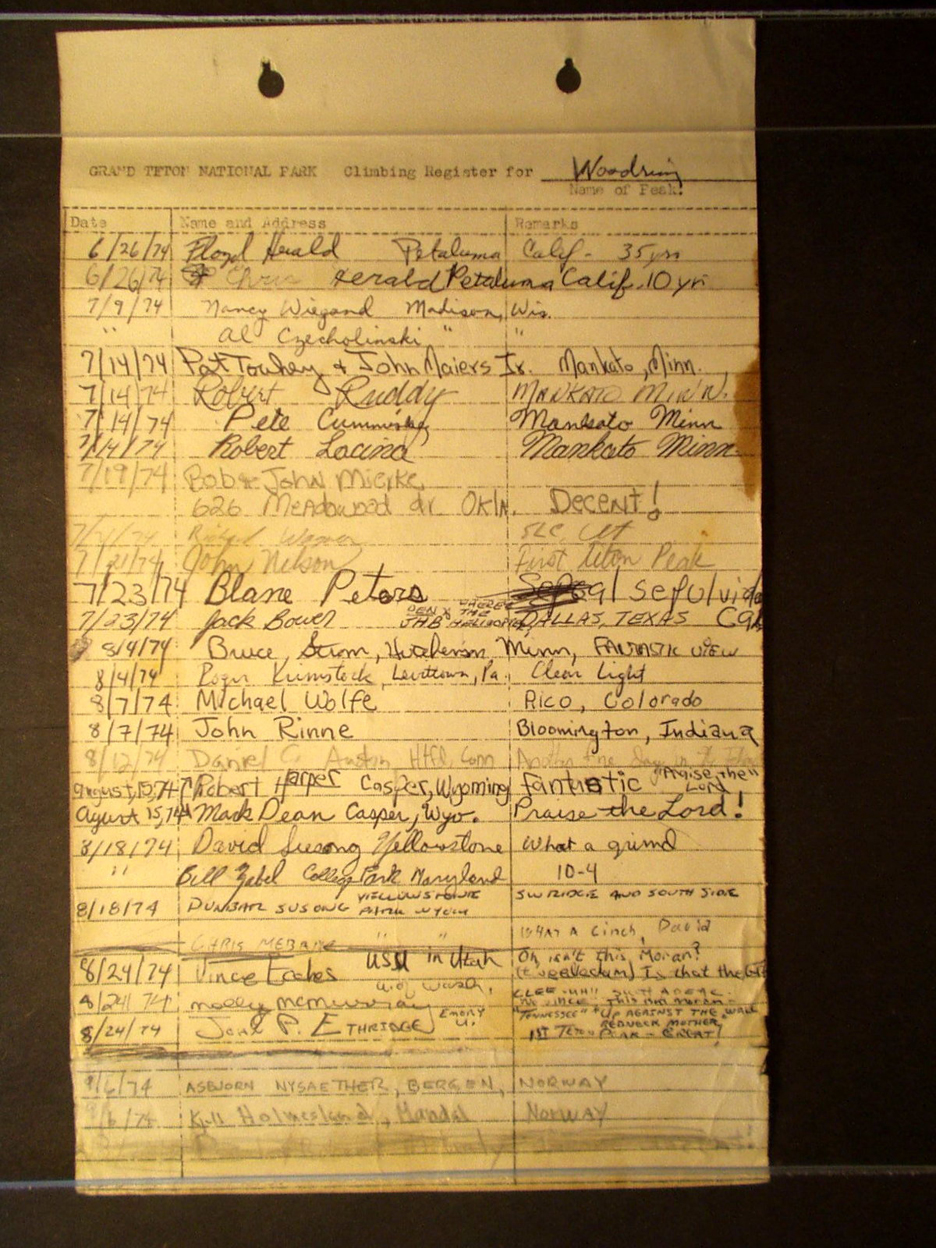 GRAND TETON NATIONAL PARK Climbing Register for Woodring
Name of Peak
Date Name and Address Remarks
6/26/74 Floyd Herald Petaluma Calif - 35 yrs
6/26/74 Chris Herald Petaluma Calif. 10 yr
7/9/74 Nancy Wiegand Madison, Wis.
" Al Czecholinski " "
7/14/74 Pat Towhey & John Maiers Jr. Mankato, Minn.
7/14/74 Robert Ruddy MANKATO MINN.
7/14/74 Pete Mankato Minn
7/14/74 Robert Lacina Mankato Minn.
7/19/74 Bob & John Mierke
626 Meadowood dr. OKla. Decent!
SLC, Ut
7/21/74 John Nelson First Teton Peak
7/23/74 Blane Peters Sepulvida
7/23/74 Jack Bower WHERE'S THE HELICOPTER DALLAS, TEXAS Cal
8/4/74 Bruce Strom, Hutchinson Minn, FANTASTIC VIEW
8/4/74 Roger Levittown, Pa. Clear Light
8/7/74 Michael Wolfe Rico, Colorado
8/7/74 John Rinne Bloomington, Indiana
8/12/74 Daniel C. Austin, Htfd, Conn Another Fine Day in
August, 15, 74 Robert Harper Casper, Wyoming fantastic "Praise the Lord"
Agust 15, 74 Mark Dean Casper, Wyo. Praise the Lord!
8/18/74 David Susong Yellowstone What a grind
" Bill Zabel College Park Maryland 10-4
8/18/74 DUNBAR SUSONG YELLOWSTONE PARK WYOM SW RIDGE AND SOUTH SIDE
CHRIS MEBANE " " WHAT A Cinch, David
8/24/74 Vince USU in Utah Oh isn't this Moran?
U. of Wash. Is that the
8/24/74 molly mcmurray
"TENNESSEE" UP AGAINST THE WALL REDNECK MOTHER
8/24/74 P. ETHRIDGE EMORY U. 1ST TETON PEAK - GREAT!
9/6/74 ASBJORN NYSAETHER, BERGEN, NORWAY
9/6/74 Kjell Holmesland, Mandal NORWAY